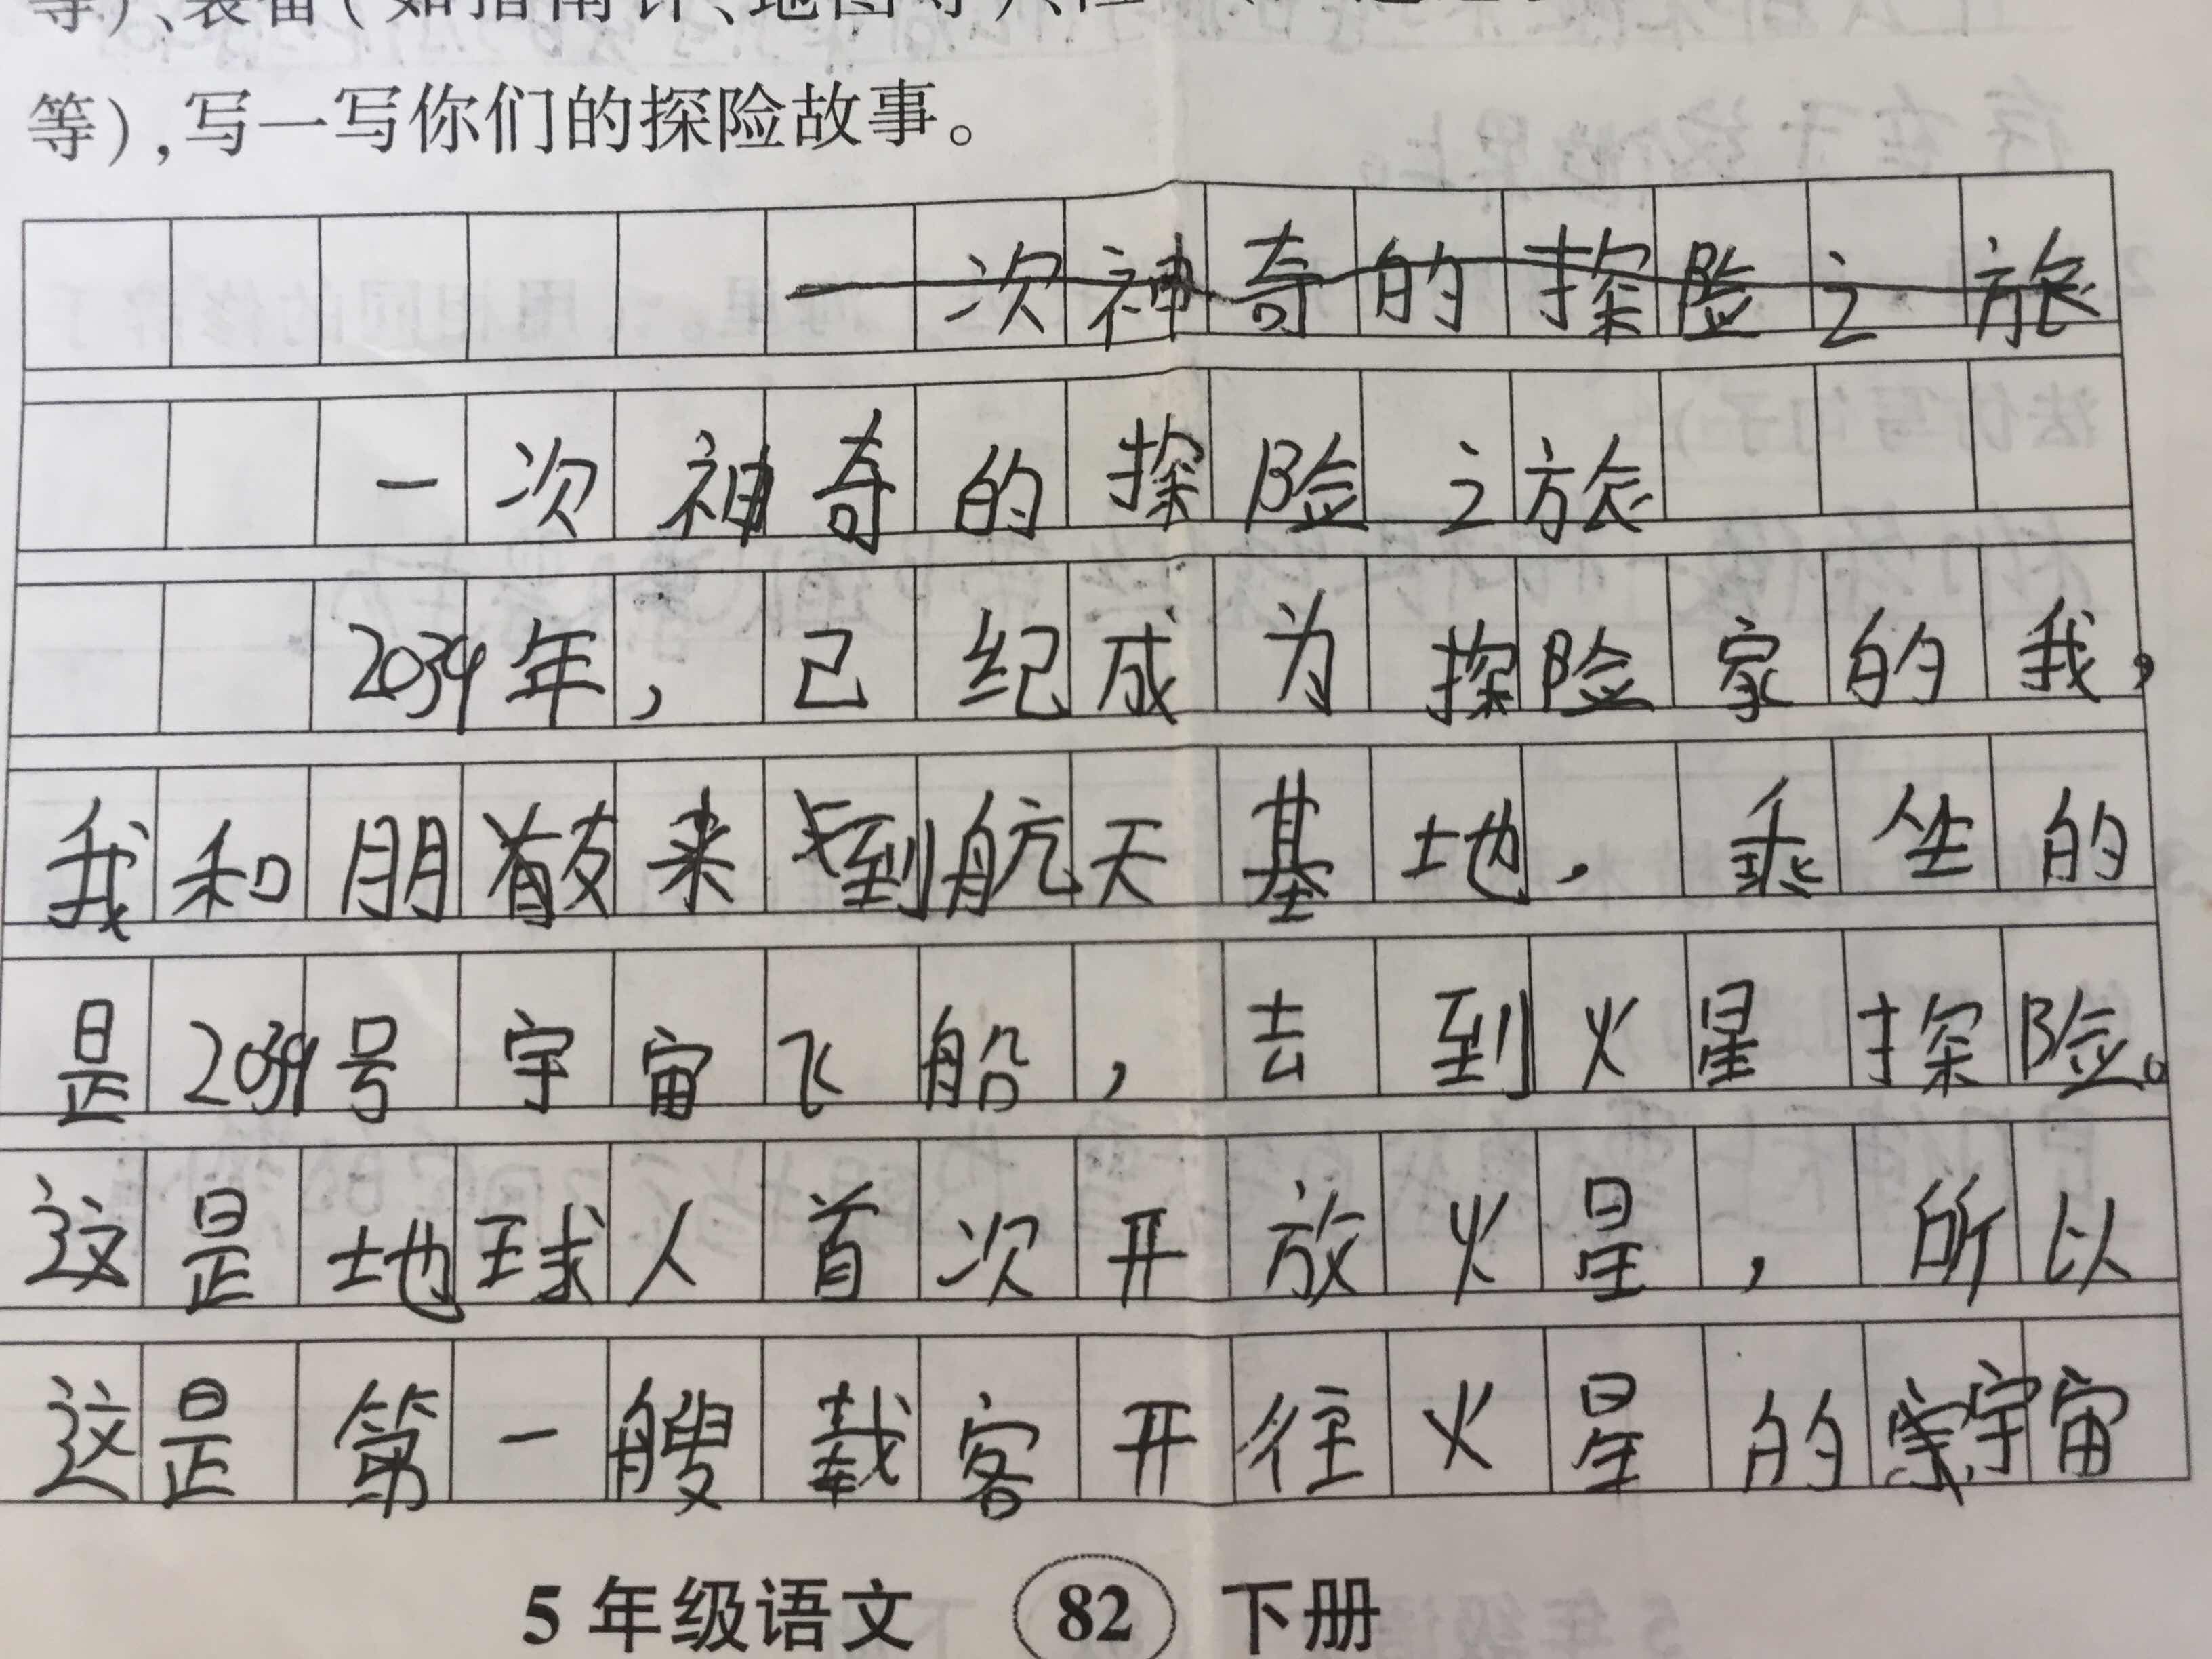 等)、装备(如指南针、地图等)、险
等),写一写你们的探险故事。
一次神奇的探险之旅
一次神奇的探险之旅
2039年,己纪成为探险家的我,
我和朋友来到航天基地,乘坐的
是2039号宇宙飞船,去到火星探险。
这是地球人首次开放火星,所以
这是第一艘载客开往火星的宇宙
5年级语文 82 下册